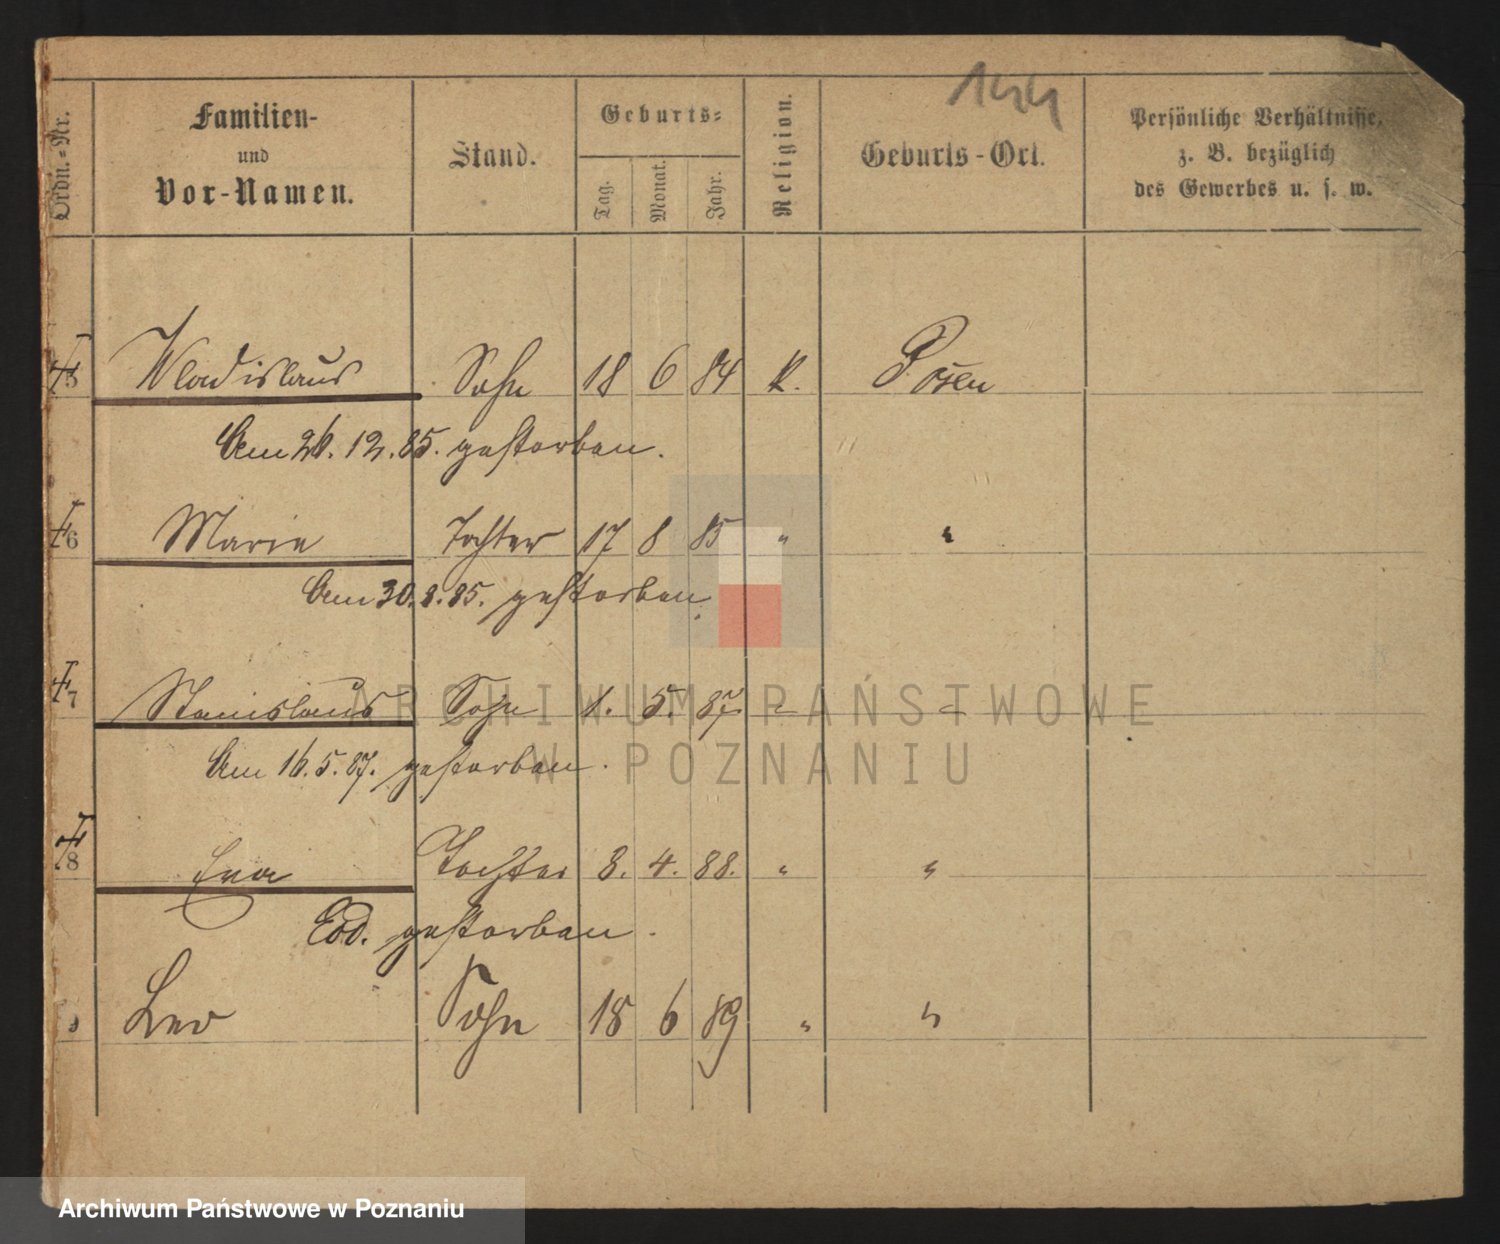 144
Ordn.-Nr. Familien- und Vor-Namen. Stand. Geburts- Tag. Monat. Jahr. Religion. Geburts-Ort. Persönliche Verhältnisse, z. B. bezüglich des Gewerbes u. s. w.
5 Wladislaus Sohn 18 6 84 k. Posen
Am 26.12.85. gestorben.
6 Marie Tochter 17 8 85 " "
Am 30.8.85. gestorben.
7 Stanislaus Sohn 1. 5. 87 " "
Am 16.5.87. gestorben.
8 Eva Tochter 8. 4. 88. " "
Eod. gestorben.
Leo Sohn 18 6 89 " "
ARCHIWUM PAŃSTWOWE
W POZNANIU
Archiwum Państwowe w Poznaniu